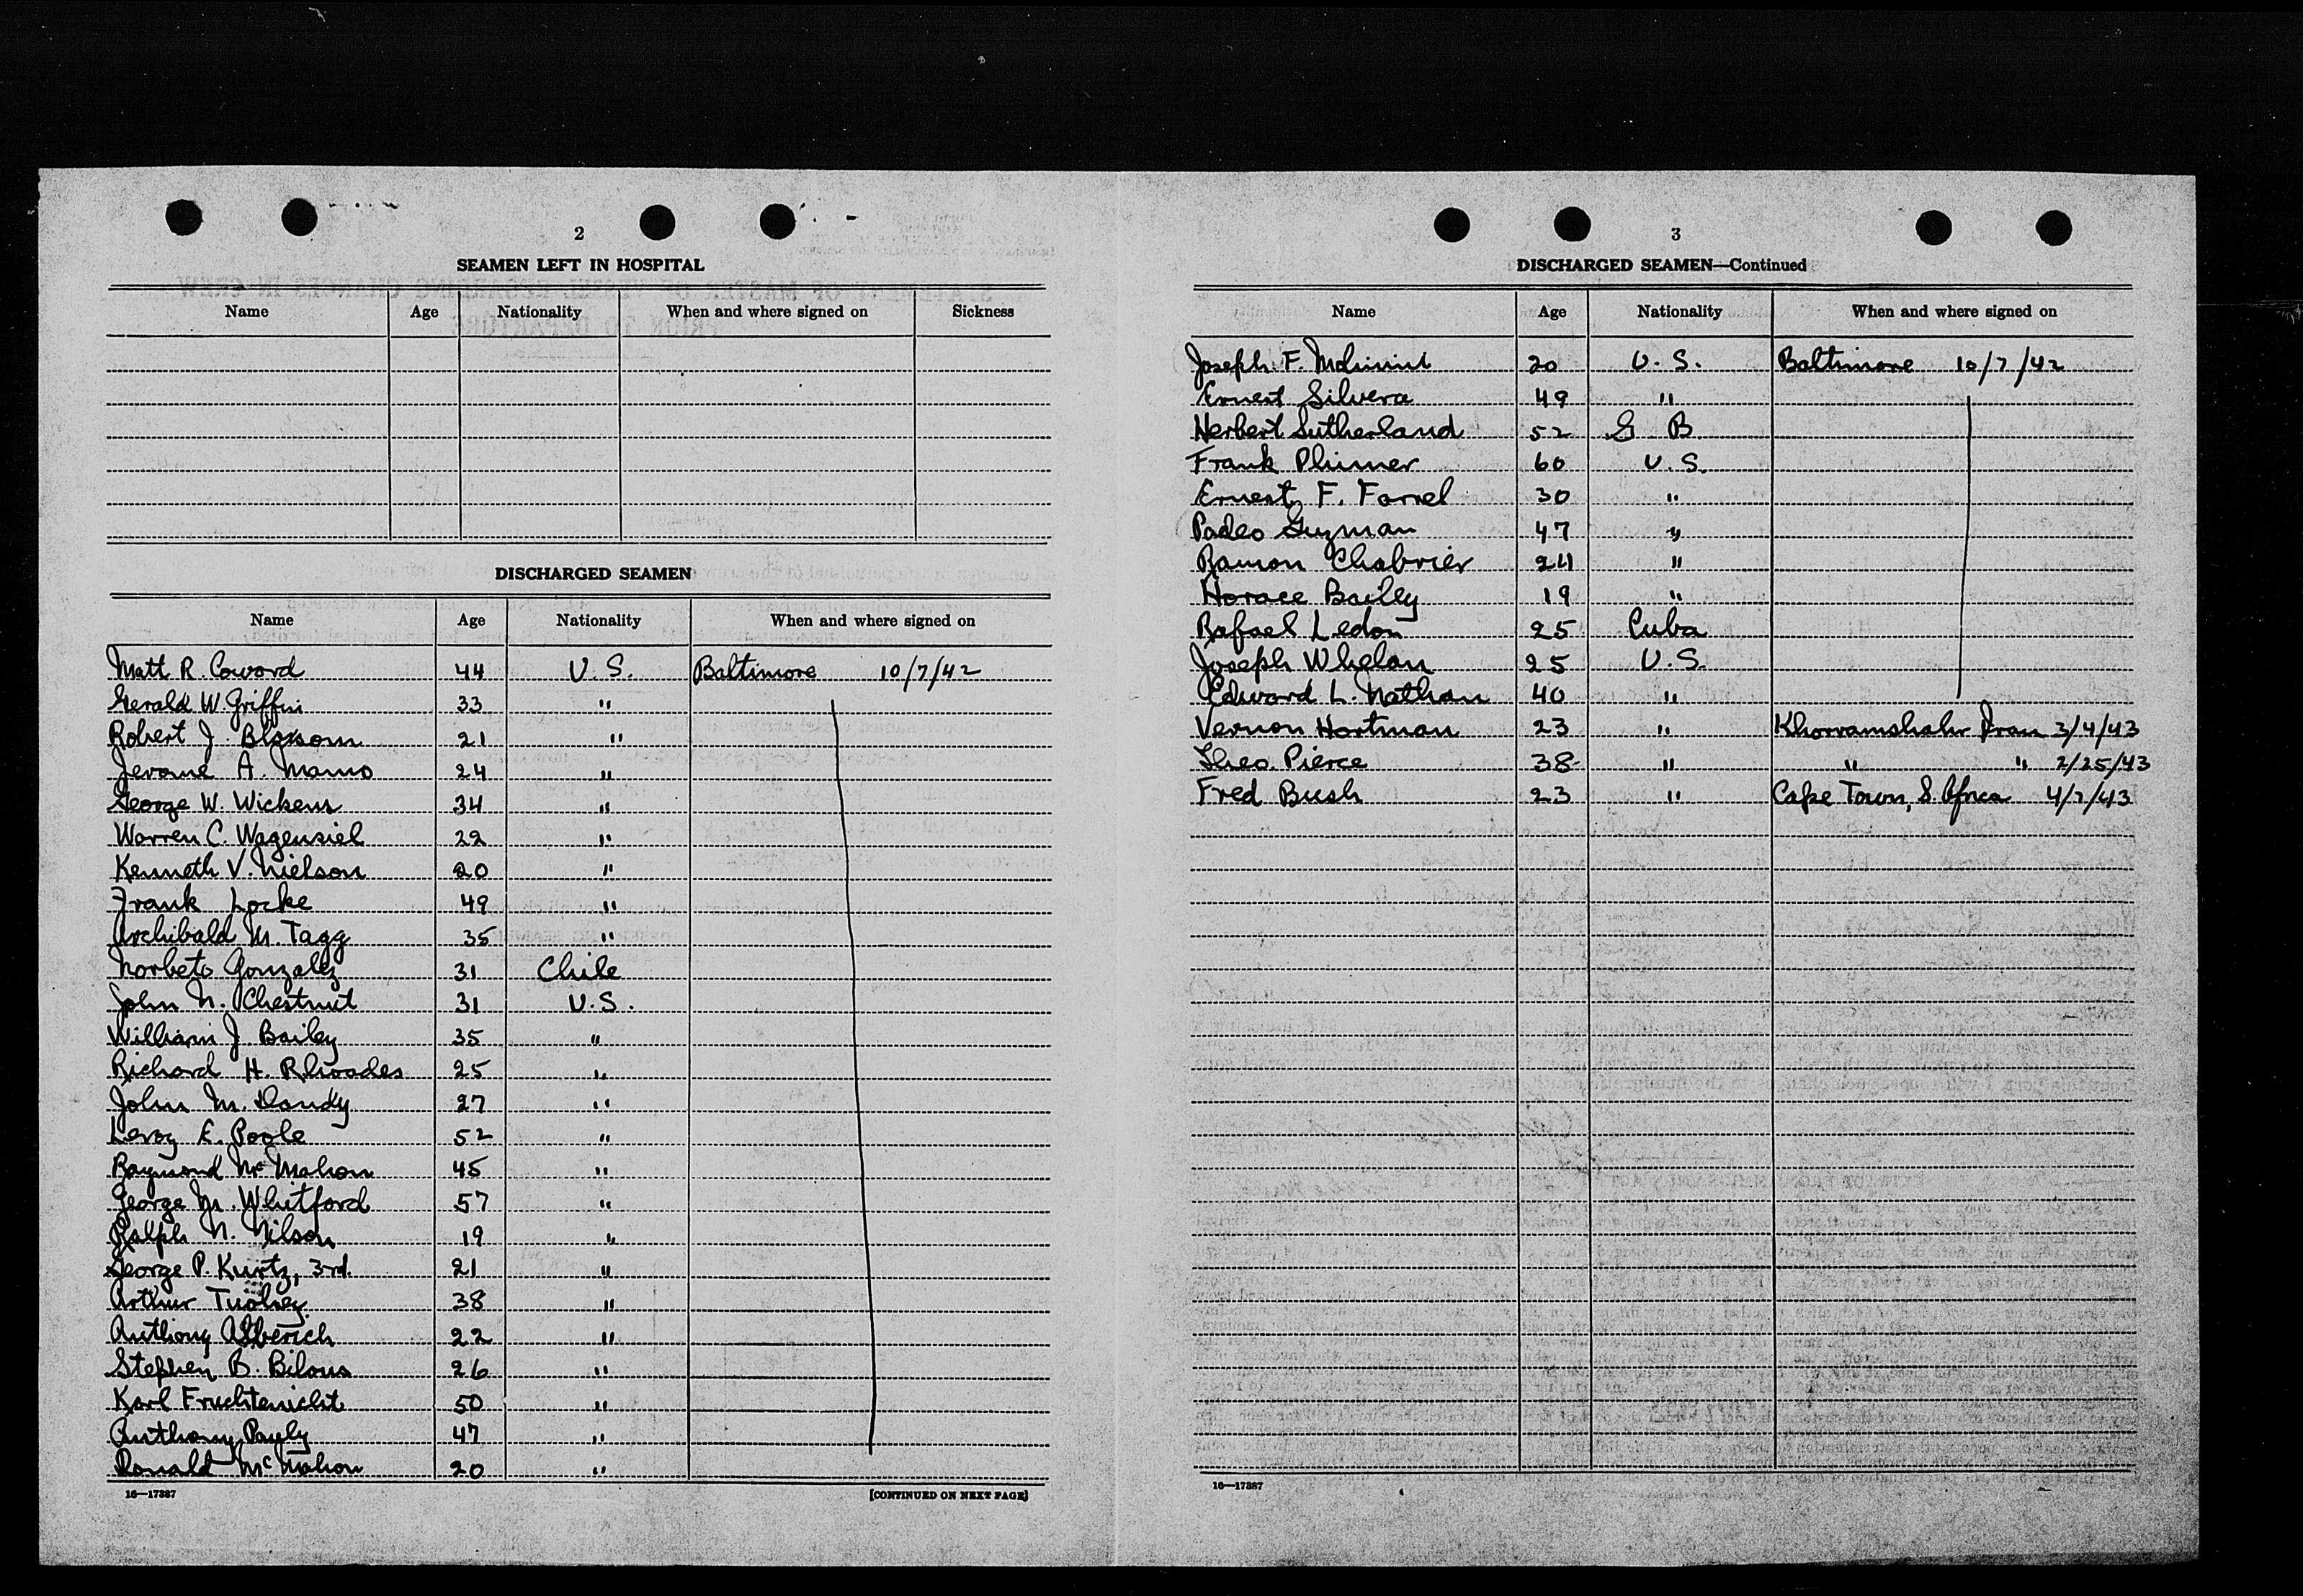 2
SEAMEN LEFT IN HOSPITAL
Name Age Nationality When and where signed on Sickness
DISCHARGED SEAMEN
Name Age Nationality When and where signed on
Matt R. Coward 44 U.S. Baltimore 10/7/42
Gerald W. Griffin 33 "
Robert J. Bloxsom 21 "
Jerome A. Mamo 24 "
George W. Wickens 34 "
Warren C. Wagensiel 22 "
Kenneth V. Nielson 20 "
Frank Locke 49 "
Archibald M. Tagg 35 "
Norbeto Gonzalez 31 Chile
John N. Chestnut 31 U.S.
William J. Bailey 35 "
Richard H. Rhoades 25 "
John M. Dandy 27 "
Leroy E. Poole 52 "
Raymond McMahon 45 "
George M. Whitford 57 "
Ralph N. Nilson 19 "
George P. Kurtz, 3rd. 21 "
Arthur 38 "
Anthony Alberich 22 "
Stephen B. Bilous 26 "
Karl Fruchtenicht 50 "
Anthony Payly 47 "
Ronald McMahon 20 "
16—17387 [CONTINUED ON NEXT PAGE]
3
DISCHARGED SEAMEN—Continued
Name Age Nationality When and where signed on
Joseph F. 20 U.S. Baltimore 10/7/42
Ernest Silvera 49 "
Herbert Sutherland 52 G B
Frank Plumer 60 U.S.
Ernest F. Farrel 30 "
Padeo Guzman 47 "
Ramon Chabrier 24 "
Horace Bailey 19 "
Rafael Ledon 25 Cuba
Joseph Whelan 25 U.S.
Edward L. Nathan 40 "
Vernon Hartman 23 " Khorramshahr Iran 3/4/43
Theo. Pierce 38 " " " 2/25/43
Fred Bush 23 " Cape Town, S. Africa 4/7/43
16—17387